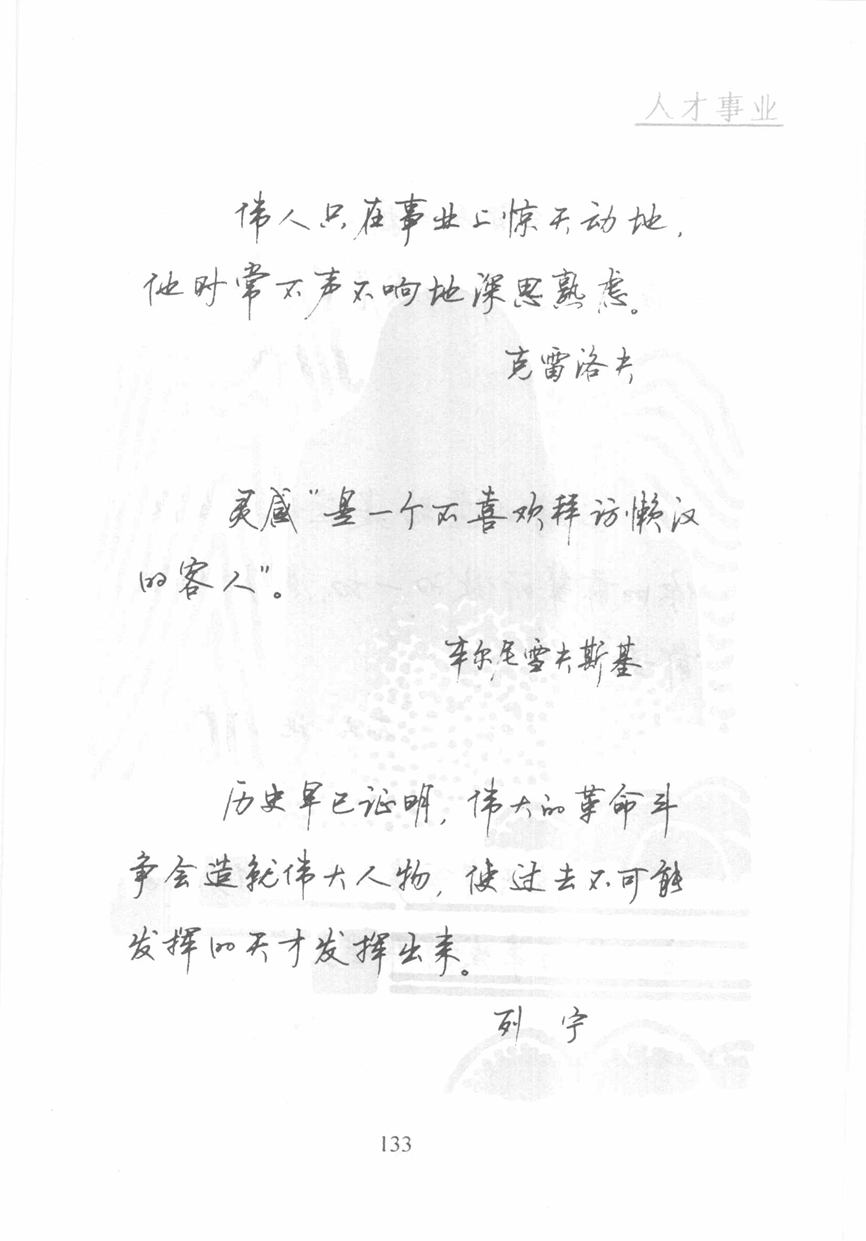 人才事业
伟人只在事业上惊天动地,
他时常不声不响地深思熟虑。
克雷洛夫
灵感"是一个不喜欢拜访懒汉
的客人"。
车尔尼雪夫斯基
历史早已证明,伟大的革命斗
争会造就伟大人物,使过去不可能
发挥的天才发挥出来。
列 宁
133